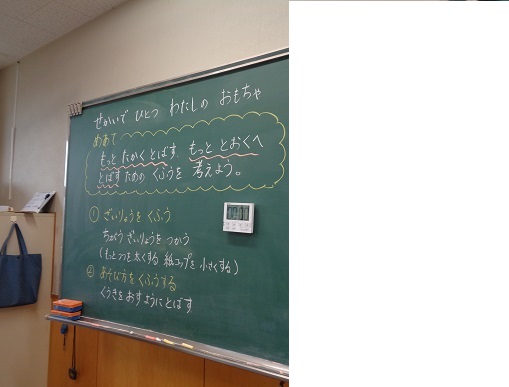 せかいで ひとつ わたしの おもちゃ
めあて
もっと たかく とばす、もっと とおくへ
とばす ための くふうを 考えよう。
① ざいりょうを くふう
ちがう ざいりょうを つかう
(もっとつつを太くする 紙コップを小さくする)
② あそび方を くふうする
くうきを おすように とばす